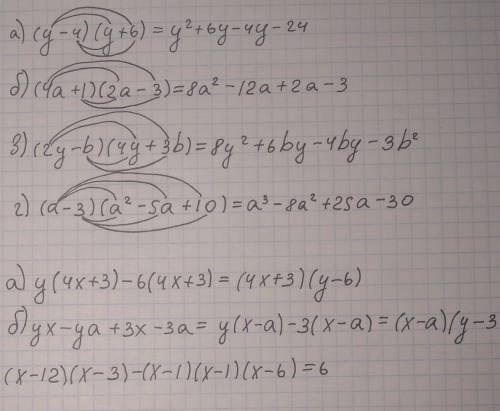 а) (y-4)(y+6)=y²+6y-4y-24
б) (4a+1)(2a-3)=8a²-12a+2a-3
в) (2y-b)(4y+3b)=8y²+6by-4by-3b²
г) (a-3)(a²-5a+10)=a³-8a²+25a-30
а) y(4x+3)-6(4x+3)=(4x+3)(y-6)
б) yx-ya+3x-3a=y(x-a)-3(x-a)=(x-a)(y-3
(x-12)(x-3)-(x-1)(x-1)(x-6)=6